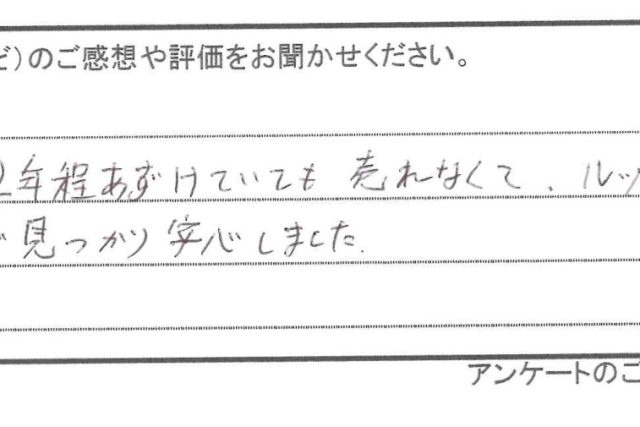 ど)のご感想や評価をお聞かせください。
2年程あずけていても売れなくて、ルッ
見つかり安心しました.
アンケートのご